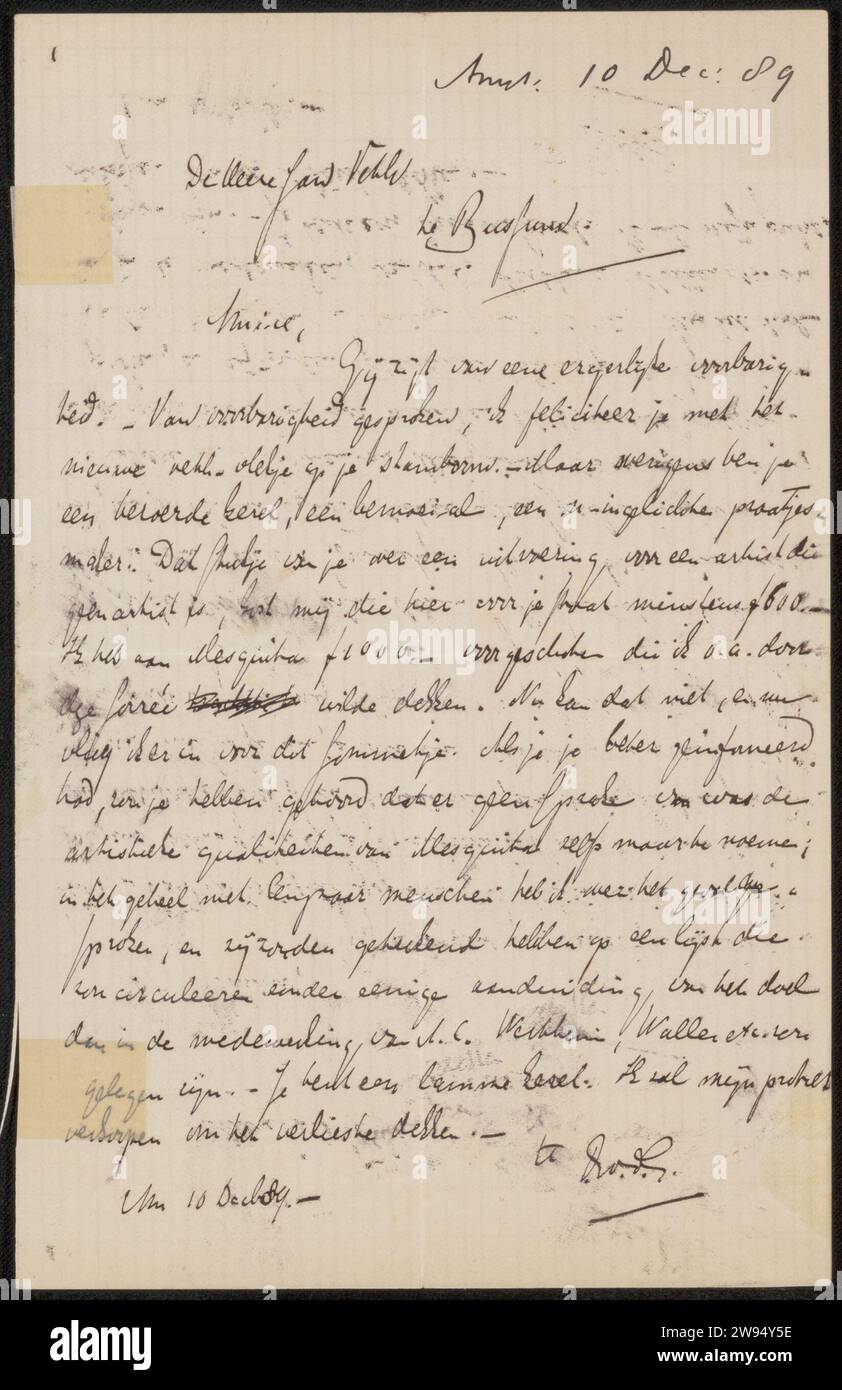 Amst. 10 Dec: 89
De Heer Jan Veth
te Bussum.
Amice,
Gij zijt van eene ergerlijke voorbarig-
heid. - Van voorbarigheid gesproken, ik feliciteer je met het
nieuwe Veth-Vethje op je stamboom. - Maar overigens ben je
een beroerde kerel, een bemoeial, een praatjes-
maker. Dat stukje van je over een uitvoering voor een artist die
geen artist is, kost mij die hier voor je staat minstens f600.-
Ik heb aan Mesquita f1000.- voorgeschoten die ik o.a. door
soirée wilde dekken. Nu kan dat niet, en nu
vlieg ik er in voor dat sommetje. Als je je beter geïnformeerd
had, zou je hebben gehoord dat er geen sprake van was de
artistieke qualiteiten van Mesquita zelfs maar te noemen;
in het geheel niet. Een paar menschen heb ik over het geval ge-
sproken, en zij zouden geteekend hebben op een lijst die
zou circuleeren zonder eenige aanduiding van het doel
dan in de medewerking van A.C. Wertheim, Waller etc. zou
gelegen zijn. - Je bent een lamme kerel. Ik zal mijn portret
verkoopen om het verlies te dekken. -
tt
10 Dec 89. -
a alamy
alamy
Image ID: 2W94Y5E
www.alamy.com